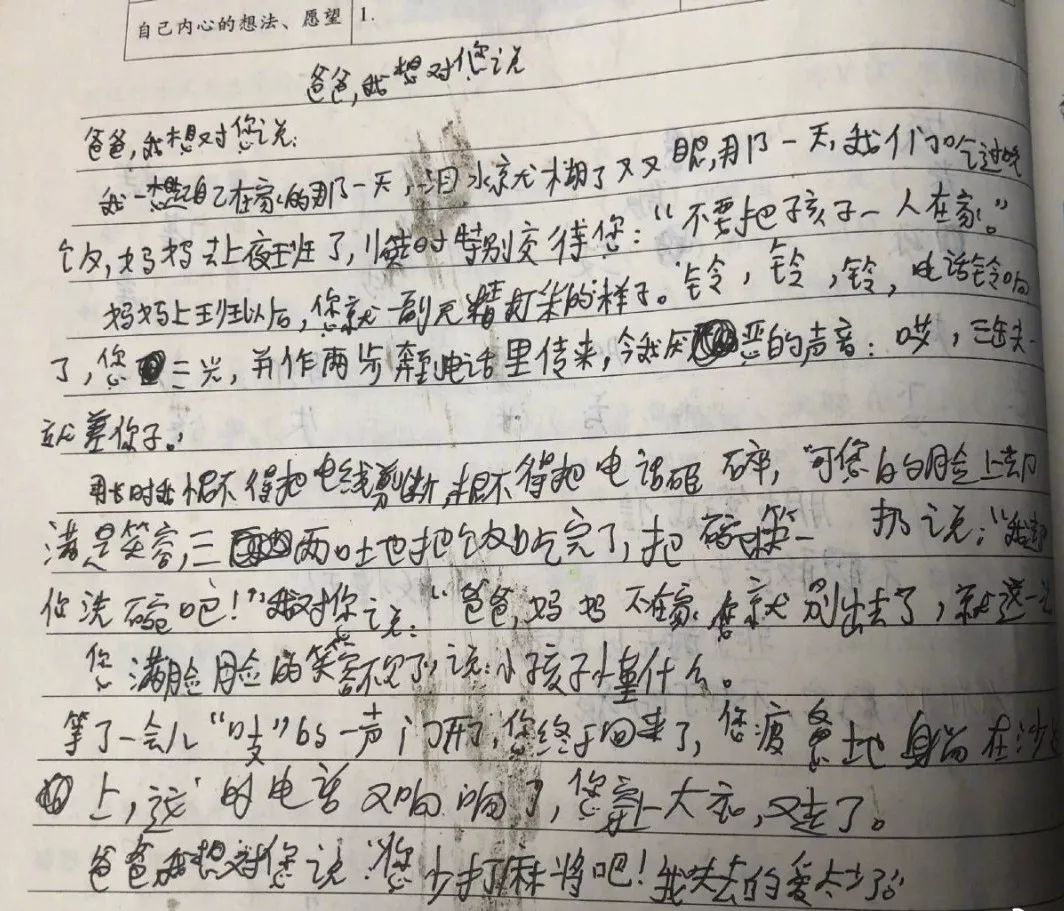 自己内心的想法、愿望 1.
爸爸,我想对您说
爸爸,我想对您说:
我一想起自己在家的那一天,泪水就模糊了双眼,那一天,我们吃过晚
饭,妈妈去上夜班了,临走时特别交待您:“不要把孩子一人在家。”
妈妈上班以后,您就一副无精打采的样子。铃,铃,铃,电话铃响
了,您三兴,并作两步奔到电话里传来,令我厌恶的声音:哎,三缺一
就差你了。
那时我恨不得把电线剪断,恨不得把电话砸碎,可您的脸上却
满是笑容,三两口地把饭吃完了,把碗筷一扔说:“我
你洗碗吧!”我对您说:“爸爸,妈妈不在家您就别出去了,就这一
您满脸的笑容不见了,说:小孩子懂什么。
等了一会儿“吱”的一声门开了,您终于回来了,您疲惫地躺在沙
上,这时电话又响响了,您穿上大衣,又走了。
爸爸我想对您说:您少打麻将吧!我失去的爱太少了。